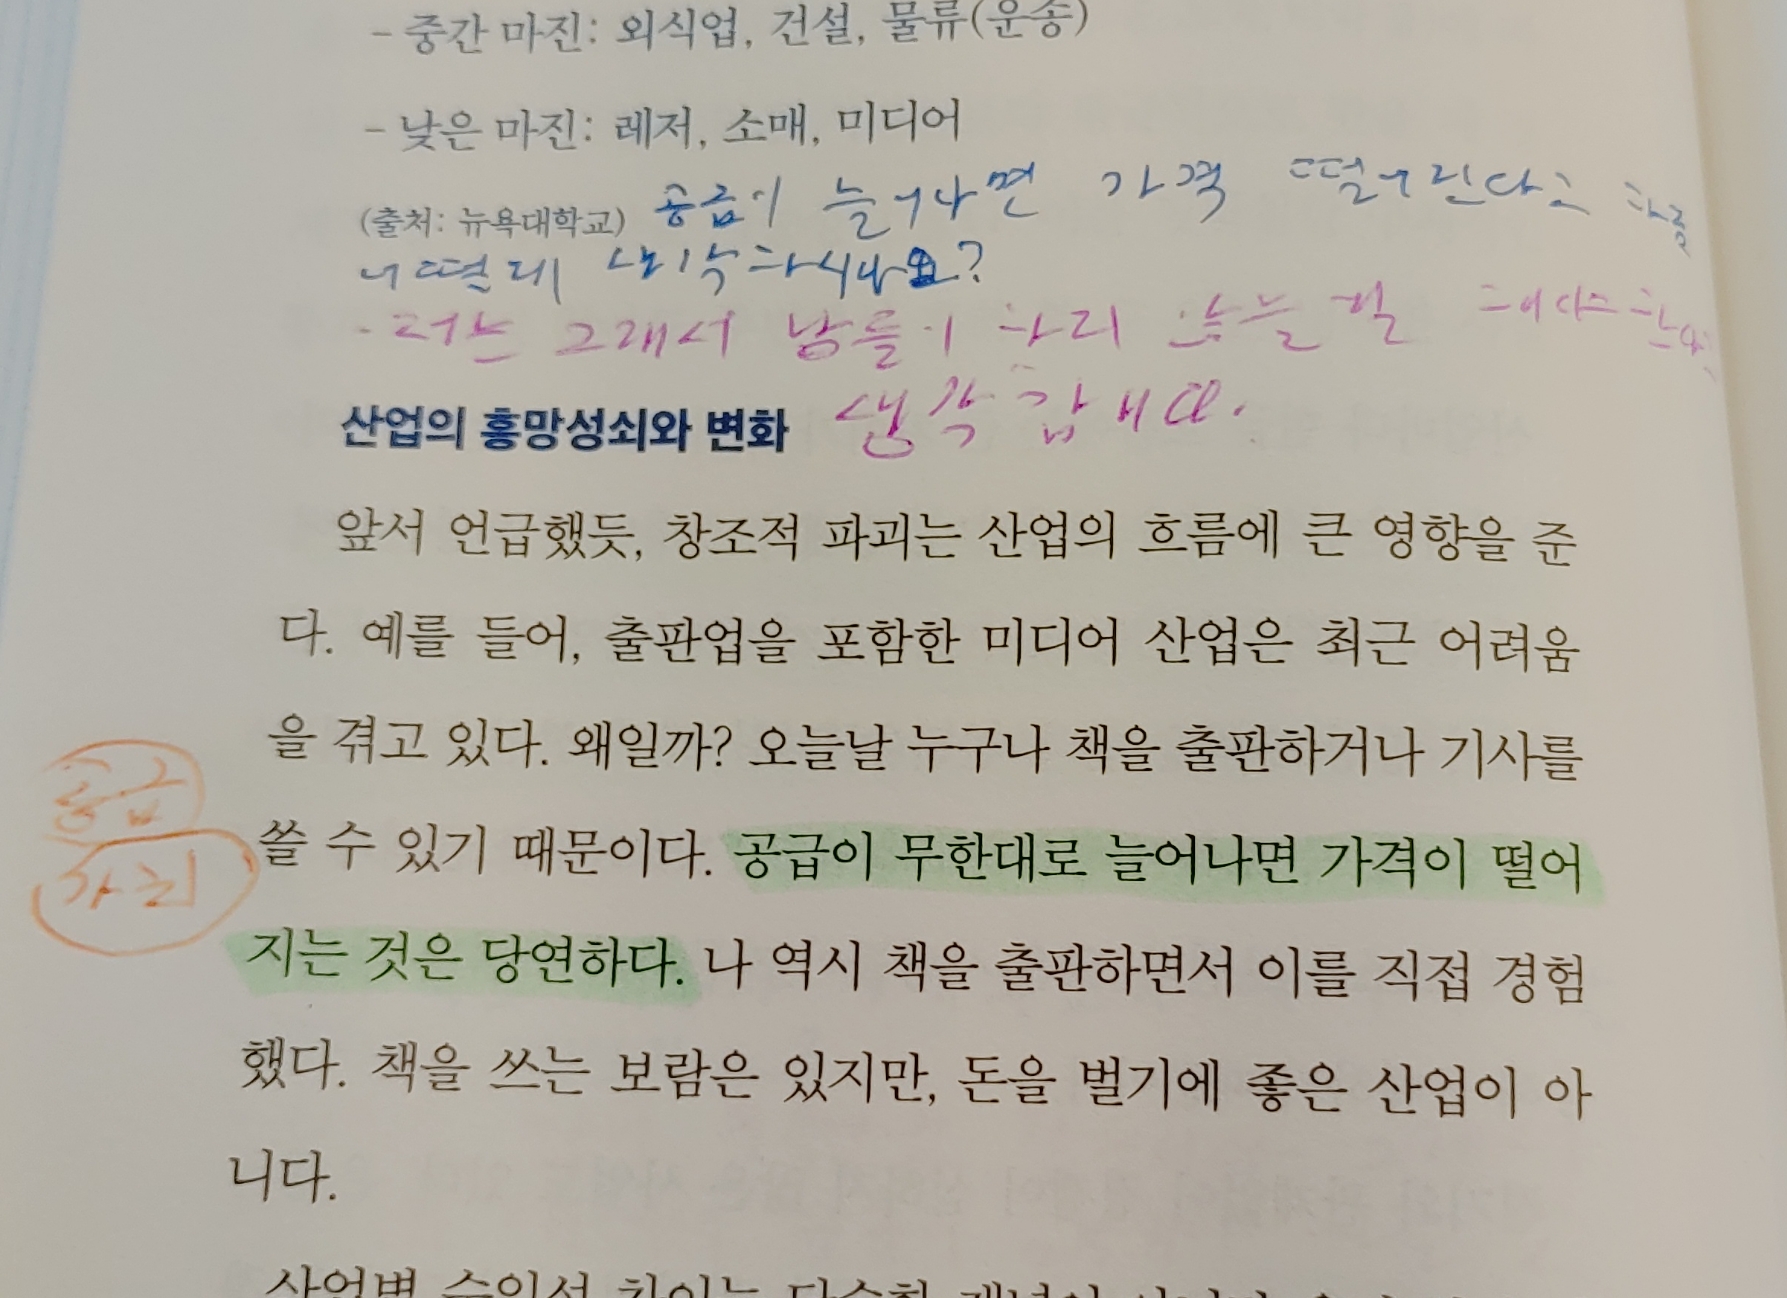 - 중간 마진: 외식업, 건설, 물류(운송)
- 낮은 마진: 레저, 소매, 미디어
(출처: 뉴욕대학교) 공급이 늘어나면 가격 떨어진다고 하죠
어떻게 생각하시나요?
- 저는 그래서 남들이 하지 않는 걸 해야 한다
산업의 흥망성쇠와 변화 생각합니다.
앞서 언급했듯, 창조적 파괴는 산업의 흐름에 큰 영향을 준
다. 예를 들어, 출판업을 포함한 미디어 산업은 최근 어려움
을 겪고 있다. 왜일까? 오늘날 누구나 책을 출판하거나 기사를
공급
쓸 수 있기 때문이다. 공급이 무한대로 늘어나면 가격이 떨어
가치
지는 것은 당연하다. 나 역시 책을 출판하면서 이를 직접 경험
했다. 책을 쓰는 보람은 있지만, 돈을 벌기에 좋은 산업이 아
니다.
산업별 수익성 차이는 단순히